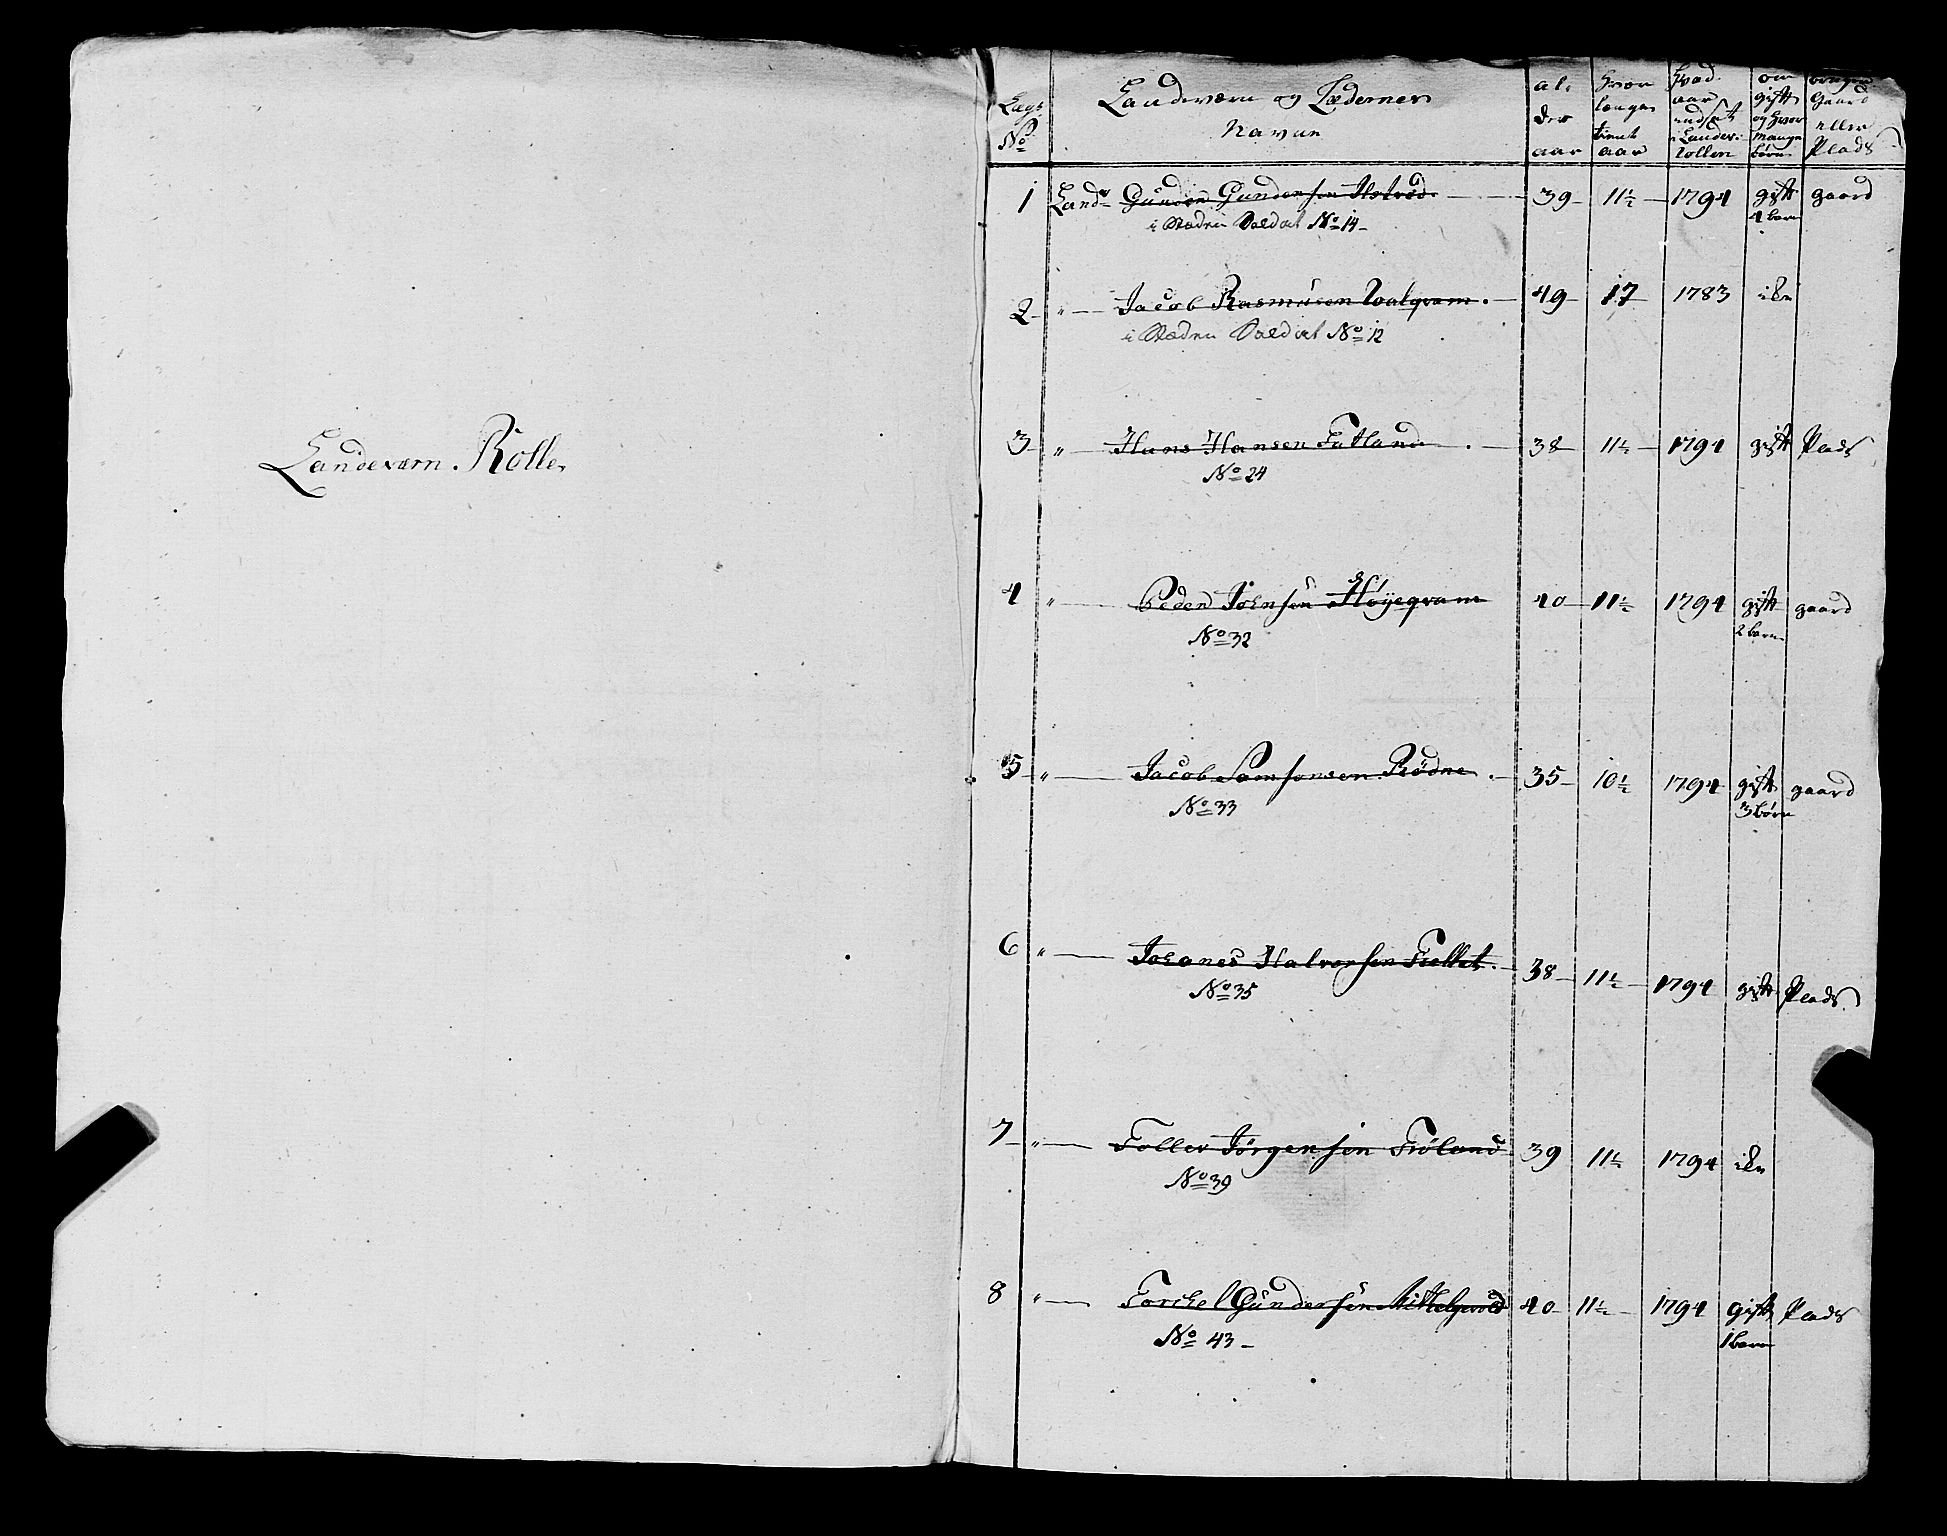 Landeværn Rolle
Lægs No
Landeværn og Lædernes Navne
al-
der
aar
hvor
længe
tient
aar
hvad
aar
indsat
i Landev:
rollen
om
gift
og hvor
mange
børn
bruger
Gaard
eller
Plads
1 Landv Gunder Gundersen 39 11½ 1794 gift gaard
4 barn
i Stæden Soldat No 14
2 " Jacob Rasmusen 49 17 1783 ike
i Stæden Soldat No 12
3 " Hans Hansen Fatland 38 11½ 1794 gift Plads
No 24
4 " Peder Johnsen Høyeqvam 40 11½ 1794 gift gaard
2 barn
No 32
5 " Jacob Samsonsen Rødne 35 10½ 1794 gift gaard
3 børn
No 33
6 " Johanes Halvorsen 38 11½ 1794 gift Plads
No 35
7 " Toller Jørgensen Frøland 39 11½ 1794 ike
No 39
8 " Torchel Gundersen 40 11½ 1794 gift Plads
1 barn
No 43